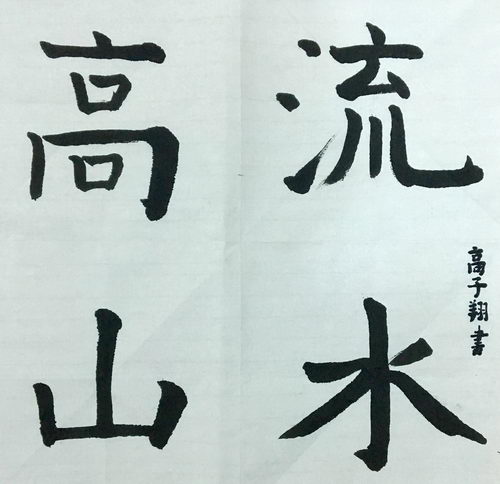 高山
流水
高子翔書